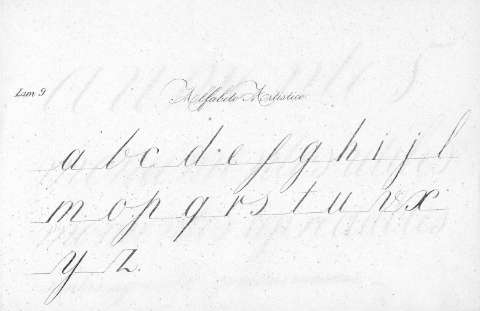 Lam 9
Alfabeto Artistico
a b c d e f g h i j l
m o p q r s t u v x
y z.